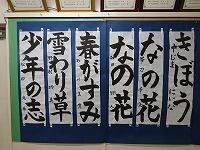 きぼう
なの花
なの花
春がすみ
雪わり草
少年の志